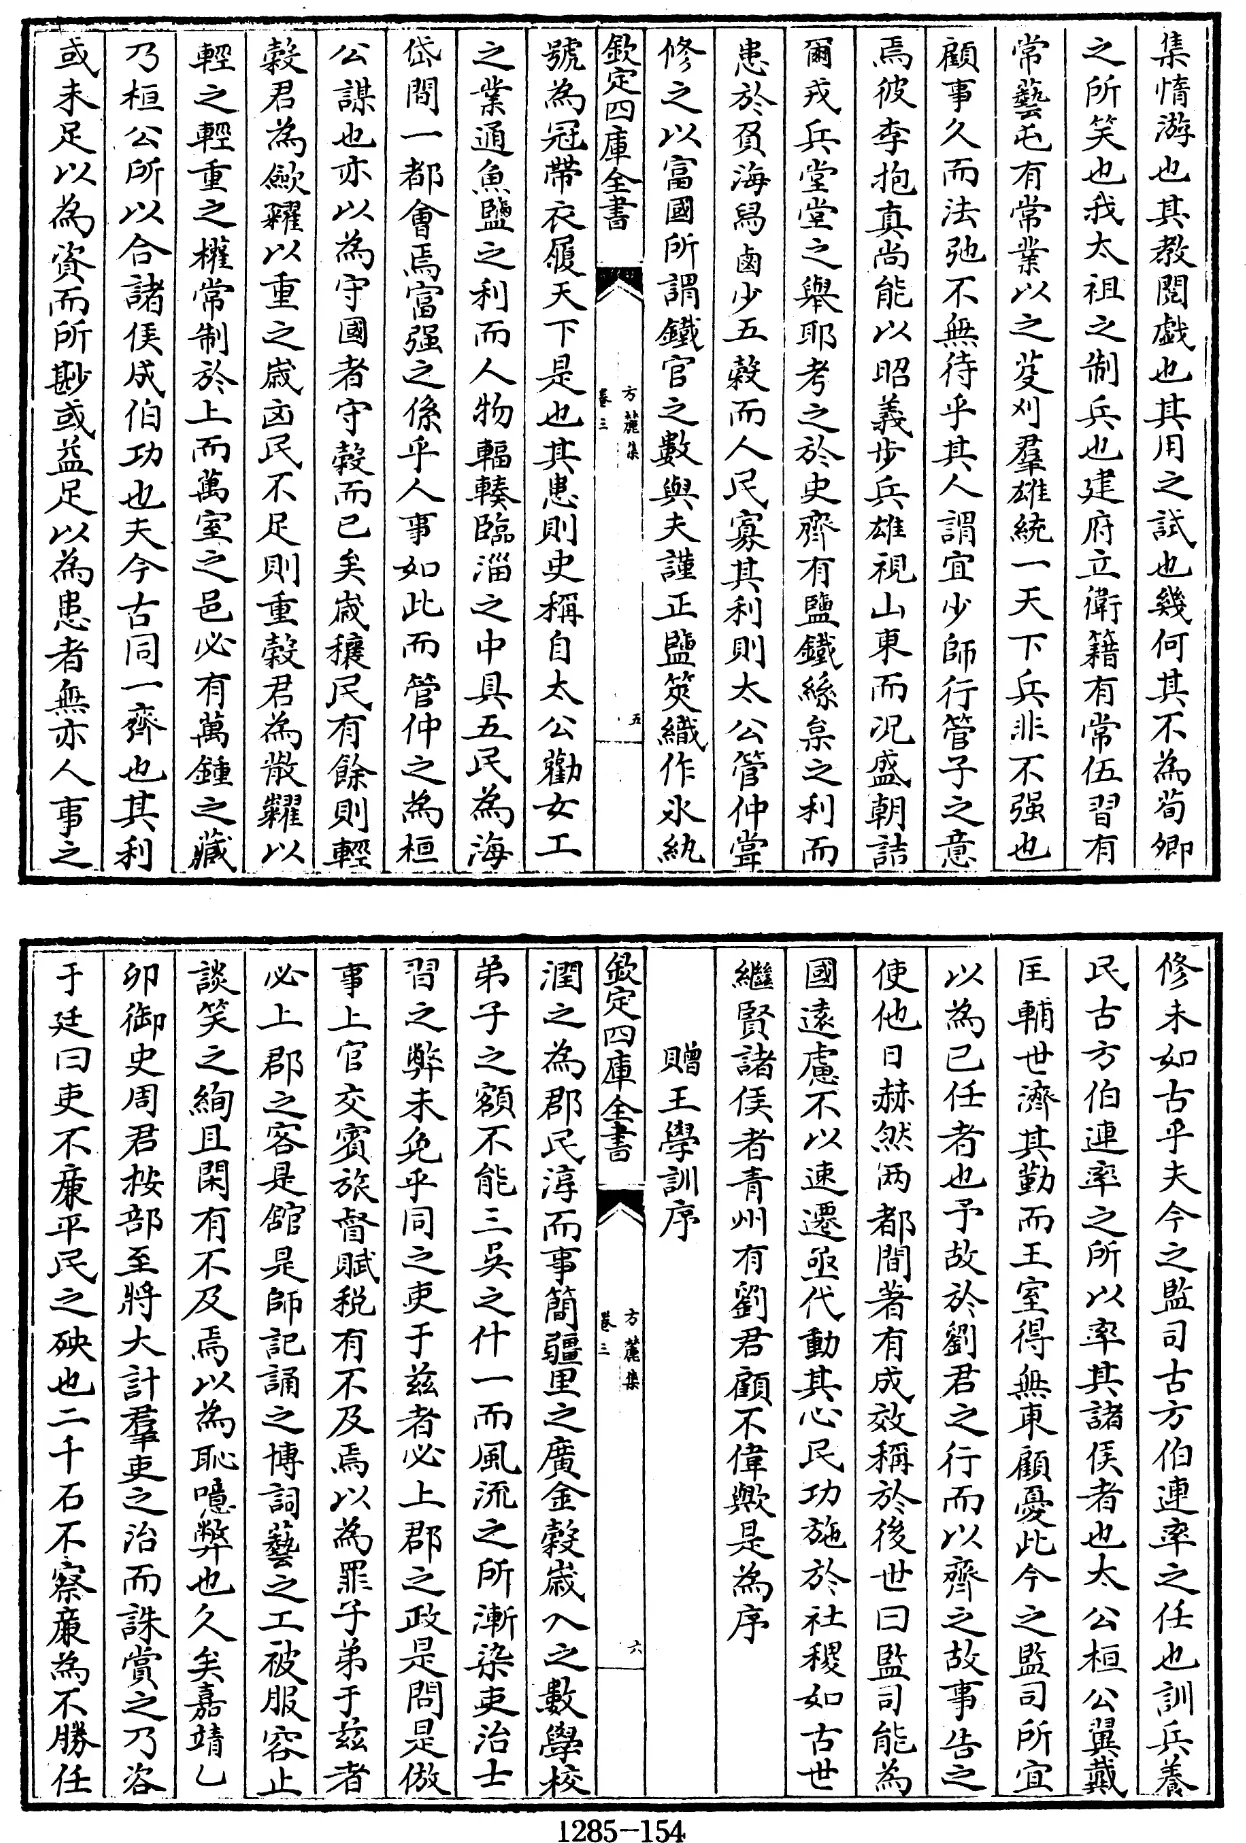 集惰游也其教閱戲也其用之試也幾何其不為荀卿
之所笑也我太祖之制兵也建府立衛籍有常伍習有
常藝屯有常業以之芟刈羣雄統一天下兵非不强也
顧事久而法弛不無待乎其人謂宜少師行管子之意
焉彼李抱真尚能以昭義步兵雄視山東而况盛朝詰
爾戎兵堂堂之舉耶考之於史齊有鹽鐵絲枲之利而
患於負海舄鹵少五穀而人民寡其利則太公管仲嘗
修之以富國所謂鐵官之數與夫謹正鹽筴織作氷紈
欽定四庫全書
方麓集
卷三
五
號為冠帶衣履天下是也其患則史稱自太公勸女工
之業通魚鹽之利而人物輻輳臨淄之中具五民為海
岱間一都會焉富强之係乎人事如此而管仲之為桓
公謀也亦以為守國者守穀而已矣歲穰民有餘則輕
穀君為歛糴以重之歲凶民不足則重穀君為散糶以
輕之輕重之權常制於上而萬室之邑必有萬鍾之藏
乃桓公所以合諸侯成伯功也夫今古同一齊也其利
或未足以為資而所尠或益足以為患者無亦人事之
修未如古乎夫今之監司古方伯連率之任也訓兵養
民古方伯連率之所以率其諸侯者也太公桓公翼戴
匡輔世濟其勤而王室得無東顧憂此今之監司所宜
以為已任者也予故於劉君之行而以齊之故事告之
使他日赫然两都間著有成效稱於後世曰監司能為
國遠慮不以速遷亟代動其心民功施於社稷如古世
繼賢諸侯者青州有劉君顧不偉歟是為序
贈王學訓序
欽定四庫全書
方麓集
卷三
六
潤之為郡民淳而事簡疆里之廣金穀歲入之數學校
弟子之額不能三吳之什一而風流之所漸染吏治士
習之弊未免乎同之吏于兹者必上郡之政是問是倣
事上官交賓旅督賦稅有不及焉以為罪子弟于兹者
必上郡之客是館是師記誦之博詞藝之工被服容止
談笑之絢且閑有不及焉以為恥噫弊也久矣嘉靖乙
卯御史周君按部至將大計羣吏之治而誅賞之乃咨
于廷曰吏不亷平民之殃也二千石不察亷為不勝任
1285-154